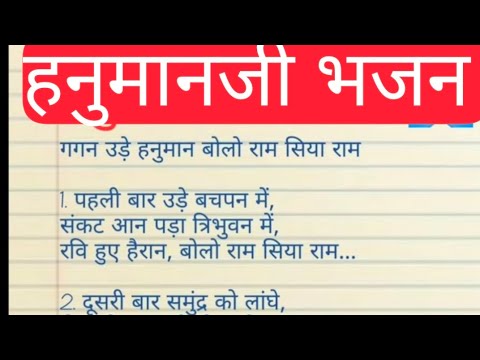 हनुमानजी भजन
गगन उड़े हनुमान बोलो राम सिया राम
1. पहली बार उड़े बचपन में,
संकट आन पड़ा त्रिभुवन में,
रवि हुए हैरान, बोलो राम सिया राम...
2. दूसरी बार समुंद्र को लांघे,